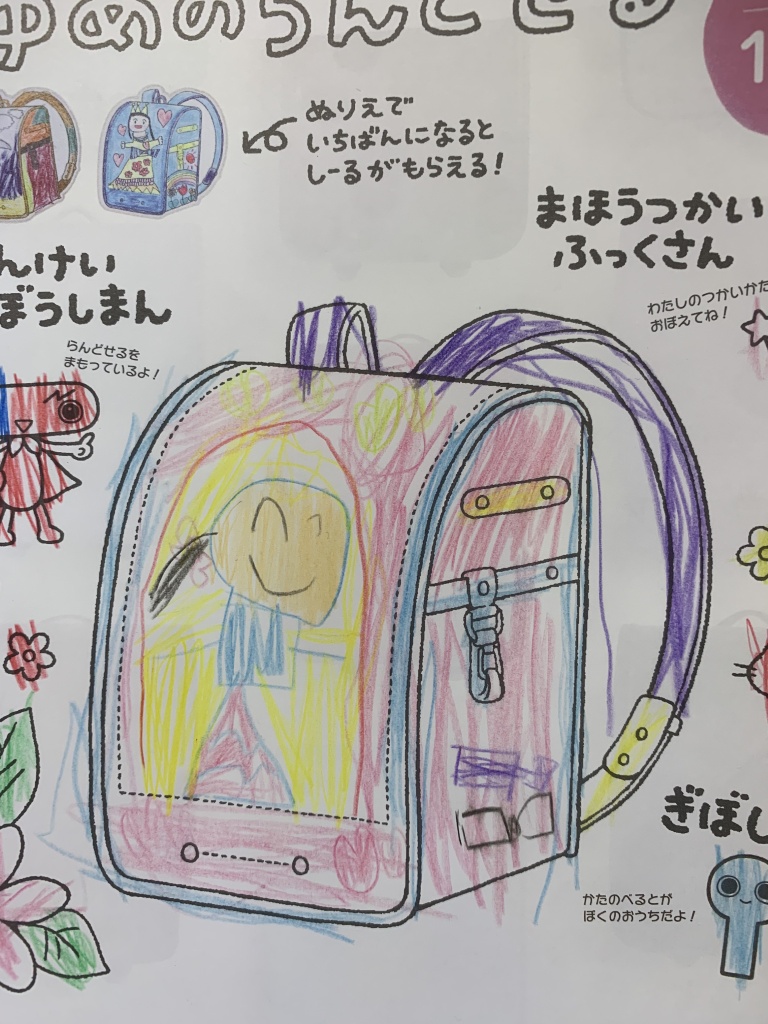 ゆめのらんどせる
1
ぬりえで
いちばんになると
しーるがもらえる！
まほうつかい
ふっくさん
わたしのつかいかた
おぼえてね！
んけい
ぼうしまん
らんどせるを
まもっているよ！
ぎぼし
かたのべるとが
ぼくのおうちだよ！